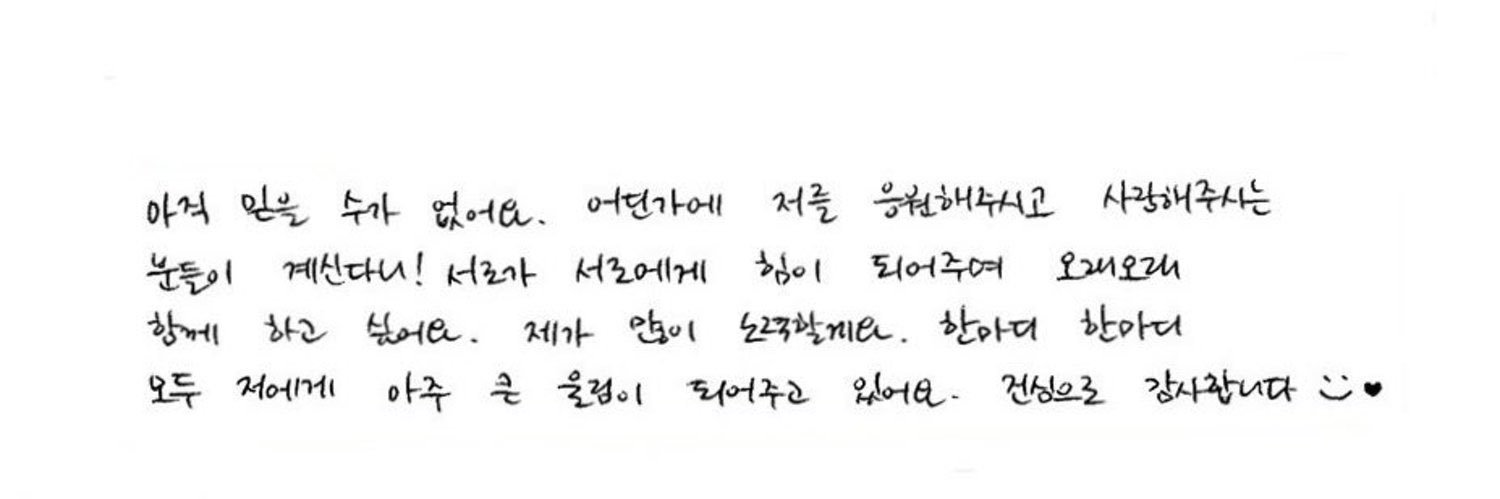 아직 믿을 수가 없어요. 어딘가에 저를 응원해주시고 사랑해주시는
분들이 계신다니! 서로가 서로에게 힘이 되어주며 오래오래
함께 하고 싶어요. 제가 많이 노력할게요. 한마디 한마디
모두 저에게 아주 큰 울림이 되어주고 있어요. 진심으로 감사합니다 :) ♥